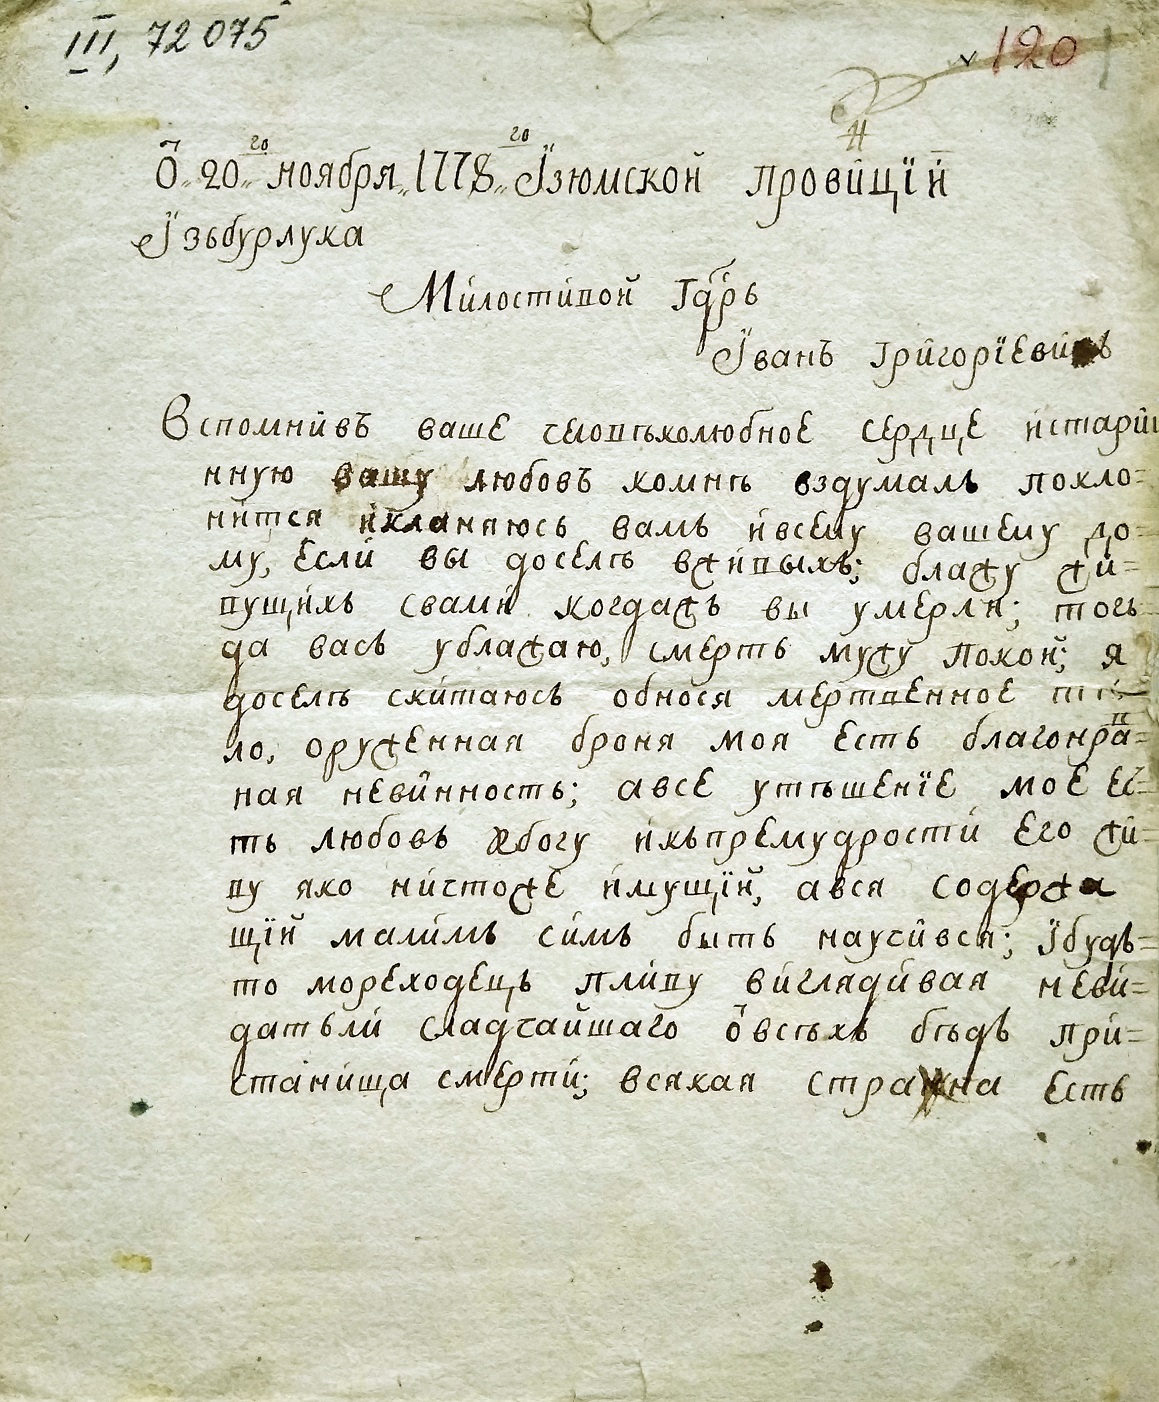 III, 72075
120
Ѿ 20го ноября 1778го Їзюмской провинцїй
Їзьбурлука
Милостивой Гдрь
Їванъ Григорїевичь
Вспомнивъ ваше человѣколюбное сердце истари
нную вашу любовъ комнѣ вздумалъ покло=
нится икланяюсь вамъ ивсему вашему до=
му, если вы доселѣ вживыхъ; блажу жи=
вущихъ свами когдажъ вы умерли; тогь
да васъ ублажаю, смерть мужу покой; я
доселѣ скитаюсь обнося мертвенное тѣ
ло, оруженная броня моя есть благонрав=
ная невинность; авсе утѣшенїе мое ес=
ть любовъ кбогу икъпремудрости его жи=
ву яко ничтоже имущїй, ався содержа
щїй малимъ симъ быть научився; їбудь=
то мореходецъ пливу виглядивая неви=
датьли сладчайшаго ѿвсѣхъ бѣдъ при=
станища смерти; всякая страна есть